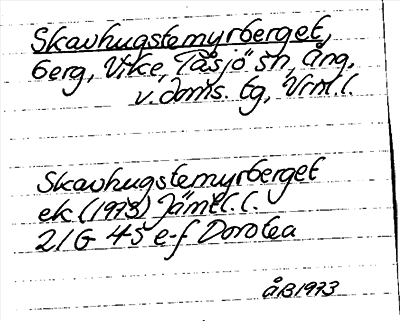 Skavhugstemyrberget,
berg, Vike, Tåsjö sn, Ång.
v. doms. tg, Vrnl. l.
Skavhugstemyrberget
ek (1973) Jämtl. l.
21G 45 e-f Dorotea
ÅB 1973